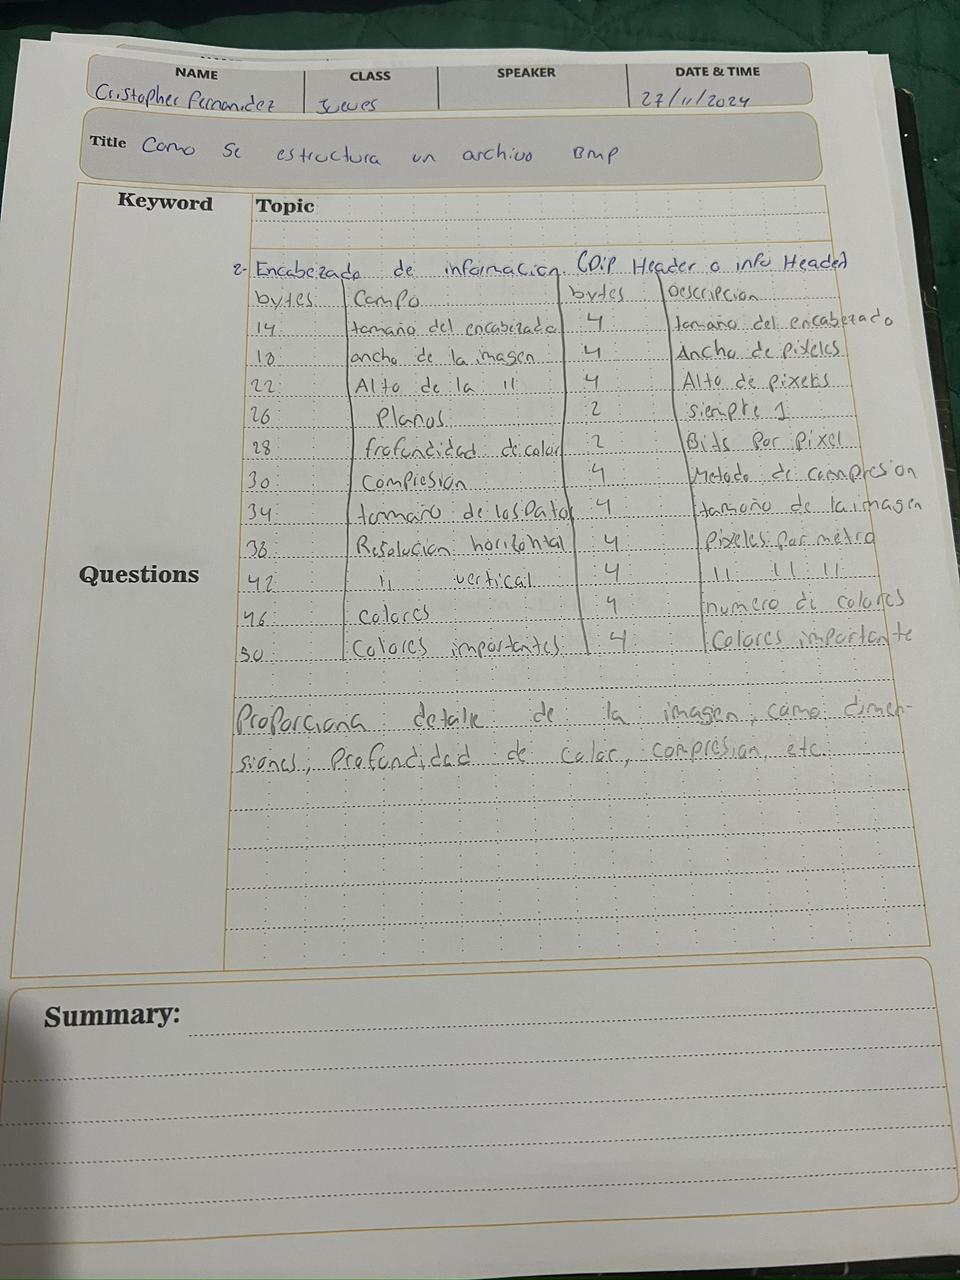 NAME CLASS SPEAKER DATE & TIME
Cristopher Fernandez Jueves 27/11/2024
Title Como se estructura un archivo BMP
Keyword Topic
2- Encabezado de informacion. (DIP Header o info Header)
bytes Campo bytes Descripcion
14 tamaño del encabezado 4 tamaño del encabezado
18 ancho de la imagen 4 Ancho de pixeles
22 Alto de la 11 4 Alto de pixeles
26 Planos 2 siempre 1
28 Profundidad de color 2 Bits por pixel
30 Compresion 4 Metodo de compresion
34 tamaño de los Datos 4 tamaño de la imagen
38 Resolucion horizontal 4 Pixeles por metro
Questions
42 11 vertical 4 11 11 11
46 Colores 4 numero de colores
50 Colores importantes 4 Colores importante
Proporciona detalle de la imagen, como dimen-
siones, Profundidad de color, compresion, etc.
Summary: